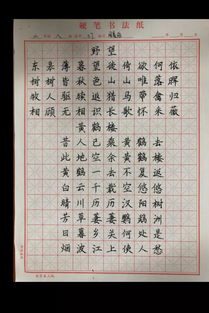 硬笔书法纸
野望
东皋薄暮望徙倚欲何依
树树皆秋色山山唯落晖
牧人驱犊返猎马带禽归
相顾无相识长歌怀采薇
黄鹤楼
昔人已乘黄鹤去
此地空余黄鹤楼
黄鹤一去不复返
白云千载空悠悠
晴川历历汉阳树
芳草萋萋鹦鹉洲
日暮乡关何处是
烟波江上使人愁